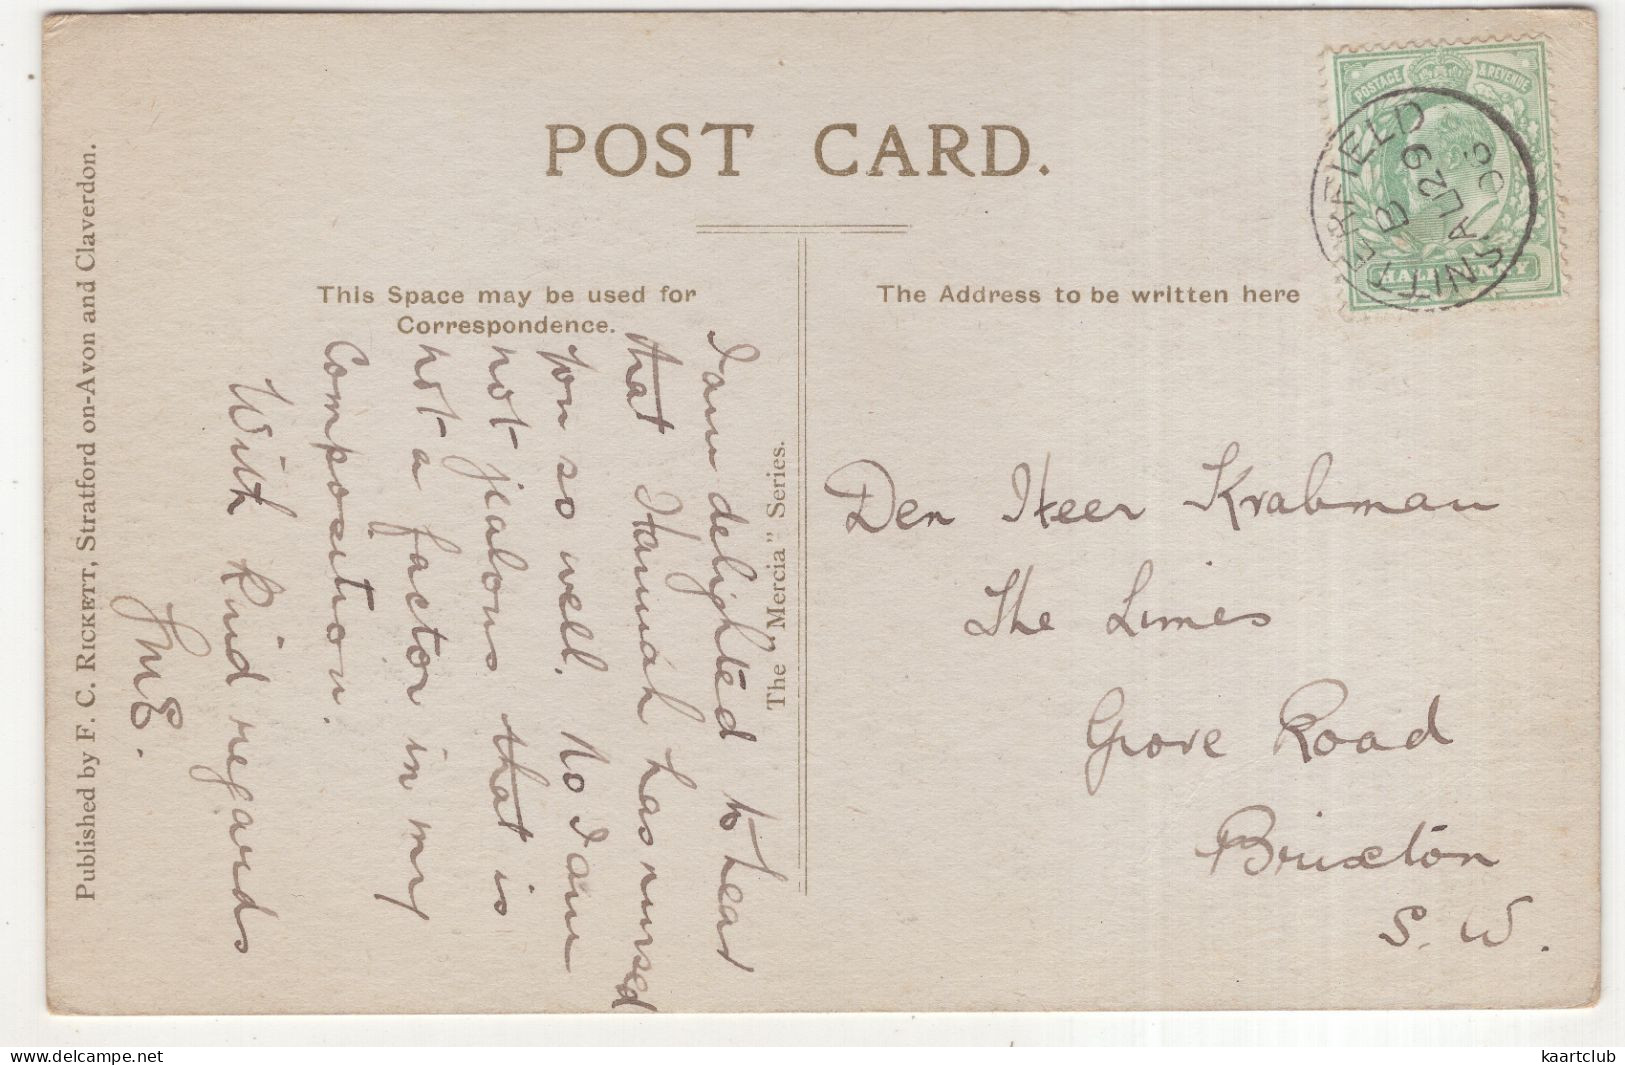 POST CARD.
POSTAGE & REVENUE
HALFPENNY
NITTERFIELD
B
AU 29
05
This Space may be used for
Correspondence.
The Address to be written here
I am delighted to hear
that Hannah has nursed
you so well. No I am
not jealous that is
not a factor in my
Composition.
With kind regards
The "Mercia" Series.
Published by F. C. RICKETT, Stratford on-Avon and Claverdon.
Den Heer Krabman
The Limes
Grove Road
Brixton
S. W.
delcampe.net
kaartclub